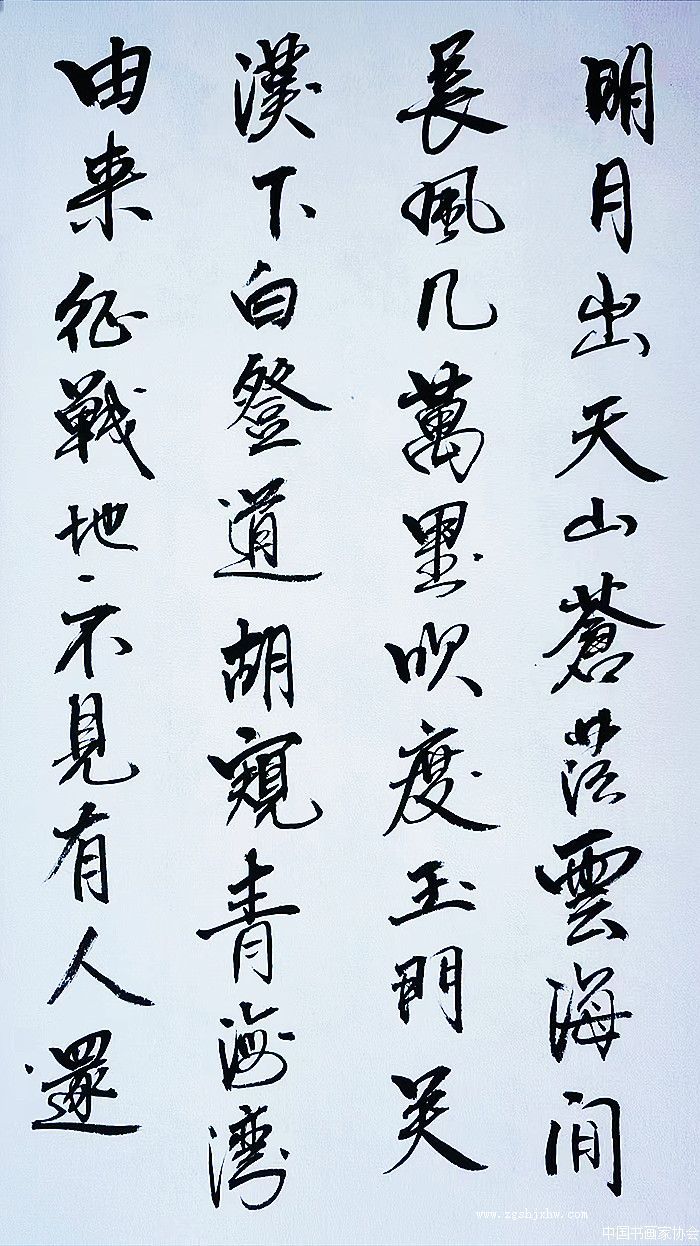 明月出天山蒼茫雲海间
長風几萬里吹度玉門关
漢下白登道胡窺青海湾
由来征戰地不見有人還
www.zgshjxhw.com
中国书画家协会